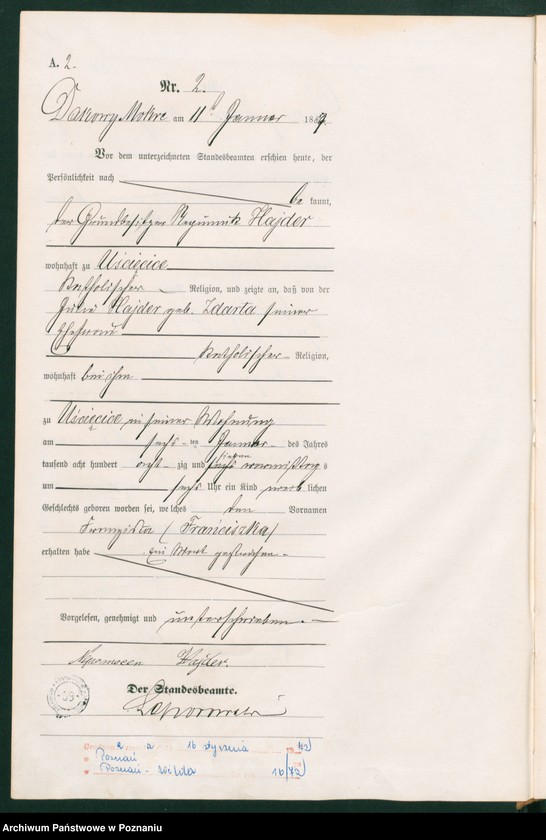 A. 2.
Nr. 2.
Dakowy Mokre am 11ten Januar 1887.
Vor dem unterzeichneten Standesbeamten erschien heute, der
Persönlichkeit nach
be kannt,
der Grundbesitzer Hajder
wohnhaft zu Uścięcice
katholischer Religion, und zeigte an, daß von der
Hajder geb. Zdarta seiner
Ehefrau
katholischer Religion,
wohnhaft bei ihm
zu Uścięcice in seiner Wohnung
am sechs ten Januar des Jahres
tausend acht hundert acht zig und sieben
sechs vormittag s
um sechs Uhr ein Kind weib lichen
Geschlechts geboren worden sei, welches den Vornamen
Franziska (Franciszka)
erhalten habe Ein Wort gestrichen.
Vorgelesen, genehmigt und unterschrieben.
Der Standesbeamte.
2 a 16 stycznia
Poznań
Poznań - Wilda 16/42
Archiwum Państwowe w Poznaniu